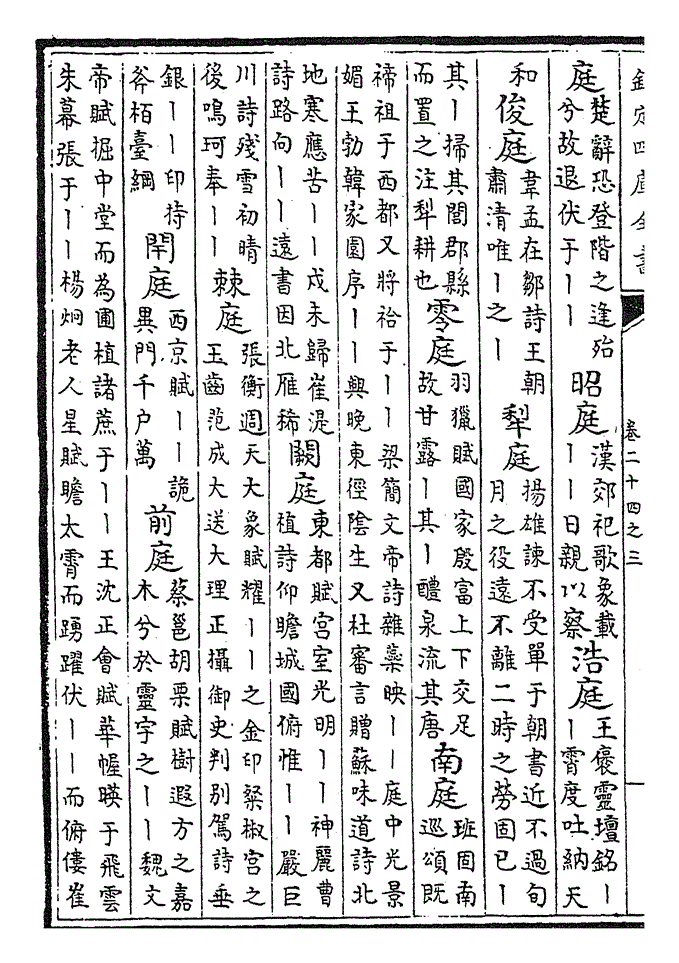 欽定四庫全書
卷二十四之三
庭
楚辭恐登階之逢殆
兮故退伏于丨丨
昭庭
漢郊祀歌象載
丨丨日親以察
浩庭
王襃靈壇銘丨
丨霄度吐納天
和
俊庭
韋孟在鄒詩王朝
肅清唯丨之丨
犂庭
揚雄諫不受單于朝書近不過旬
月之役遠不離二時之勞固已丨
其丨掃其閭郡縣
而置之注犁耕也
零庭
羽獵賦國家殷富上下交足
故甘露丨其丨醴泉流其唐
南庭
班固南
巡頌既
禘祖于西都又將祫于丨丨梁簡文帝詩雜蘂映丨丨庭中光景
媚王勃韓家園序丨丨興晚東徑陰生又杜審言贈蘇味道詩北
地寒應苦丨丨戍未歸崔湜
詩路向丨丨遠書因北雁稀
闕庭
東都賦宮室光明丨丨神麗曹
植詩仰瞻城國俯惟丨丨嚴巨
川詩殘雪初晴
後鳴珂奉丨丨
棘庭
張衡週天大象賦耀丨丨之金印粲椒宮之
玉齒范成大送大理正攝御史判別駕詩垂
銀丨丨印持
斧栢臺綱
閈庭
西京賦丨丨詭
異門千户萬
前庭
蔡邕胡栗賦樹遐方之嘉
木兮於靈宇之丨丨魏文
帝賦掘中堂而為圃植諸蔗于丨丨王沈正會賦華幄暎于飛雲
朱幕張于丨丨楊炯老人星賦瞻太霄而踴躍伏丨丨而俯僂崔